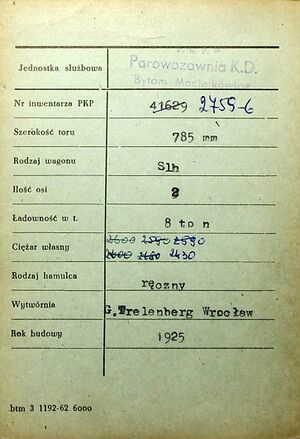 Jednostka służbowa
Parowozownia K.D.
Bytom-Maciejkowice
Nr inwentarza PKP 41629 2755-6
Szerokość toru 785 mm
Rodzaj wagonu Slh
Ilość osi 2
Ładowność w t. 8 ton
Ciężar własny 2600 2580 2550
2600 2480 2430
Rodzaj hamulca ręczny
Wytwórnia G.Trelenberg Wrocław
Rok budowy 1925
btm 3 1192-62 6000